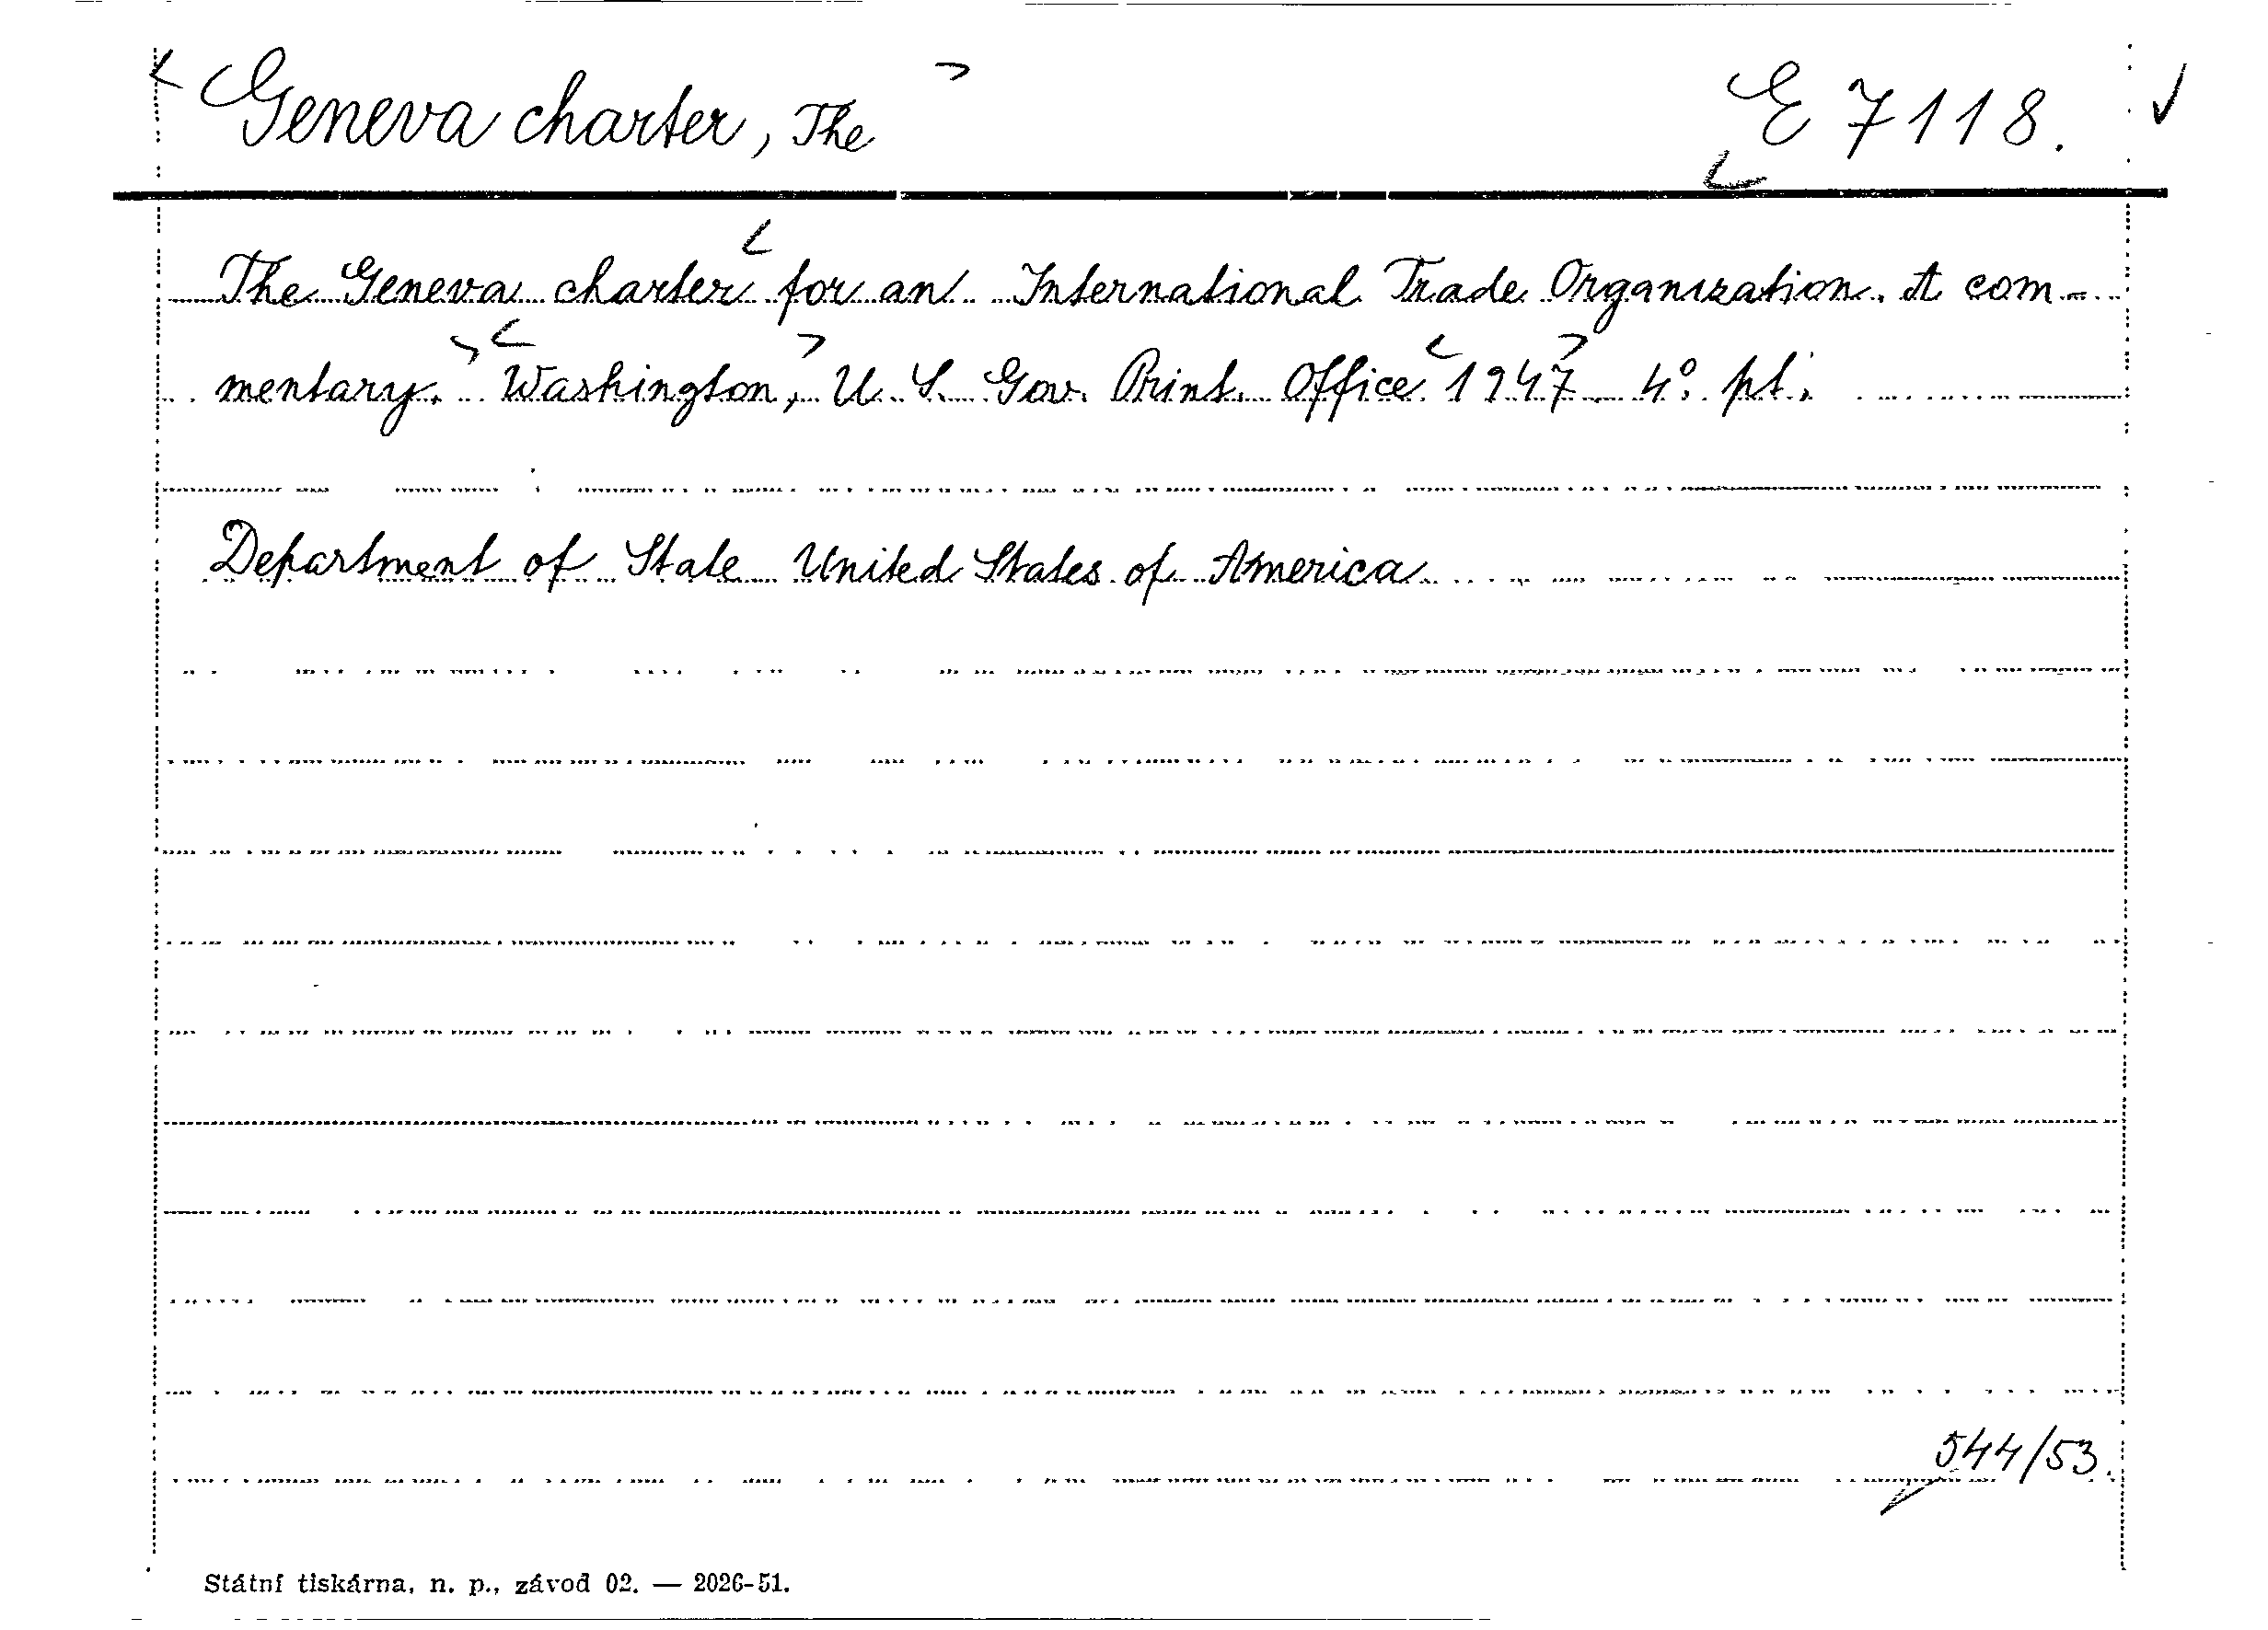 Geneva charter, The
E 7118.
The Geneva charter for an International Trade Organization. A com-
mentary. Washington, U. S. Gov. Print. Office 1947. 4°. pt.
Department of State United States of America
544/53.
Státní tiskárna, n. p., závod 02. — 2026-51.